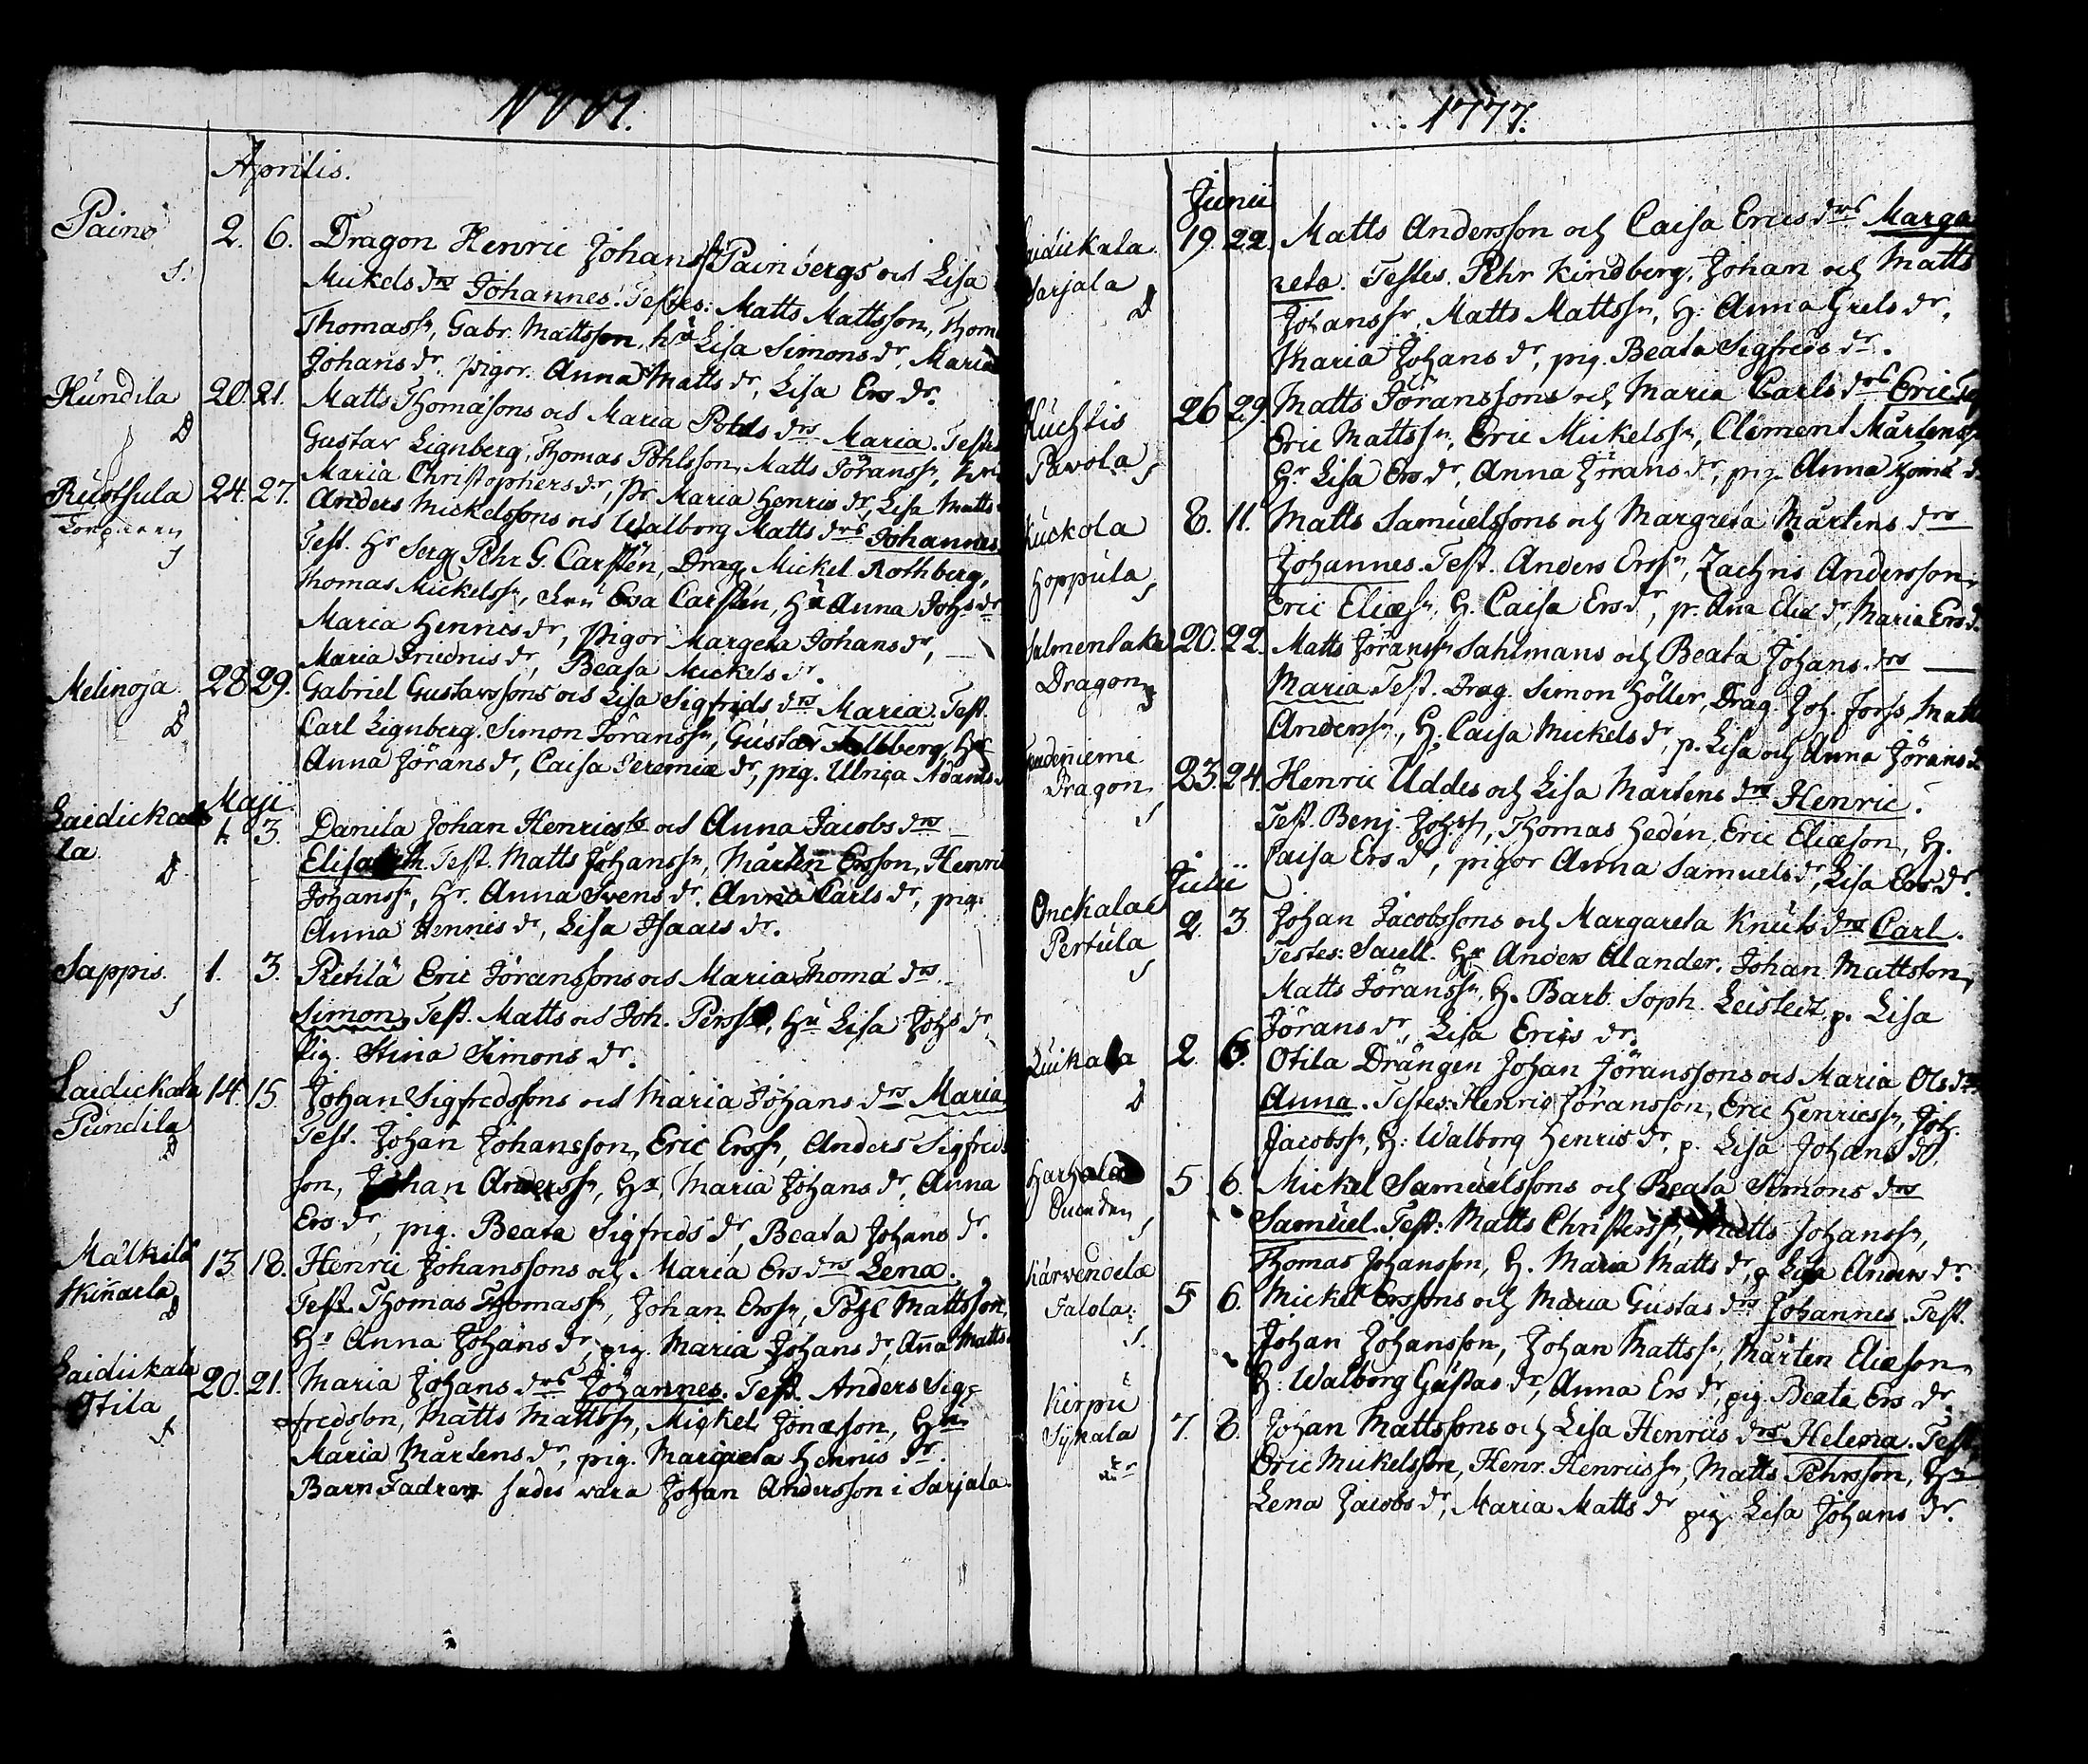 1777.
Aprilis.
Paino 2. 6. Dragon Henric Johanss Painbergs och Lisa
S. Mickels drs Johannes. Testes: Matts Mattsson, Thom
Thomass, Gabr. Mattsson, hu Lisa Simons dr, Maria
Johans dr. pigor. Anna Matts dr, Lisa Ers dr.
Hundila 20. 21. Matts Thomasons och Maria Pohls drs Maria. Testes
D Gustav Lignberg, Thomas Pohlsson, Matts Jöranss,
Maria Christophers dr, Pr Maria Henrics dr, Lisa Matts
Ruotsula 24. 27. Anders Mickelssons och Walborg Matts drs Johannes.
S Test. Hr Serg. Pehr G. Carstén, Drag. Mickel Rothberg,
Thomas Mickelss, Eva Carstén, Hu Anna Johs dr
Maria Henrics dr, Pigor Margeta Johans dr,
Maria Fridrics dr, Beata Mickels dr.
Melinoja 28 29. Gabriel Gustavssons och Lisa Sigfrids drs Maria. Test.
D Carl Lignberg. Simon Jöranss, Gustav Hr
Anna Jörans dr, Caisa Jeremiæ dr, pig. Ulrica Adams
Maji
Laidicka
la 1. 3. Danila Johan Henrics och Anna Jacobs drs
D Elisabeth. Test. Matts Johanss, Mårten Ersson, Henric
Johanss, Hr. Anna Svens dr. Anna Carls dr, pig:
Anna Henrics dr, Lisa Isaacs dr.
Sappis. 1. 3. Pietilä Eric Jöranssons och Maria Thomæ drs
S Simon, Test. Matts och Joh. Perss, Hu Lisa Johs dr
Pig. Stina Simons dr.
Laidickala 14. 15. Johan Sigfredssons och Maria Johans drs Maria
Pundila Test. Johan Johansson, Eric Erss, Anders Sigfreds
D son, Johan Anderss, Hr, Maria Johans dr, Anna
Ers dr, pig. Beata Sigfreds dr, Beata Johans dr.
Mälkilä 13 18. Henric Johanssons och Maria Ers drs Lena.
Kinnarla Test. Thomas Thomass, Johan Erss, Pohl Mattsson,
D Hr Anna Johans dr pig. Maria Johans dr, Anna Matts
Laidickala 20. 21. Maria Johans drs Johannes. Test. Anders Sig=
Otila fredsson, Matts Mattss, Mickel Jonæson, Hu
Maria Mårtens dr, pig. Margeta Henrics dr.
Barn Fadren sades vara Johan Andersson i Sarjala.
1777.
Junii
Laidickala 19. 22. Matts Andersson och Caisa Erics drs Marga
Sarjala reta. Testes. Pehr Kindberg, Johan och Matts
D Johanss, Matts Mattss, H: Anna Grels dr,
Maria Johans dr, pig. Beata Sigfreds dr.
Huchtis 26 29. Matts Jöranssons och Maria Carls drs Eric Test
Pavola Eric Mattss, Eric Mickelss, Clement Mårtenss
S Hr Lisa Ers dr, Anna Jörans dr, pig. Anna Thomæ d
Kuckola 8. 11. Matts Samuelssons och Margreta Mårtens drs
Hoppula Johannes. Test. Anders Erss, Zachris Andersson,
S Eric Eliæs, H. Caisa Ers dr, p. Ana Eliæ dr, Maria Ers d.
Salmentaka 20. 22. Matts Jöranss Sahlmans och Beata Johans drs
Dragon Maria. Test. Drag. Simon Höller, Drag. Joh. Forss, Matts
Anderss, H. Caisa Mickels dr, p. Lisa och Anna Jörans d
niemi
Dragon 23. 24. Henric Uddes och Lisa Mårtens drs Henric.
S Test. Benj. Johss, Thomas Hedén, Eric Eliæson, H.
Caisa Ers dr, pigor Anna Samuels dr, Lisa Ers dr.
Julii
Onckala 2. 3. Johan Jacobssons och Margareta Knuts drs Carl.
Pertula Testes: Saull. Hr Anders Alander. Johan Mattsson,
S Matts Jöranss, H. Barb. Soph. Leistedt, p. Lisa
Jörans dr, Lisa Erics dr.
Luikala 2 6. Otila Drängen Johan Jöranssons och Maria Ols drs
D Anna. Testes: Henric Jöransson, Eric Henricss, Joh.
Jacobss, H: Walborg Henrics dr, p. Lisa Johans dr.
Harhala 5 6. Mickel Samuelssons och Beata Simons drs
S Samuel. Test: Matts Christerss, Matts Johanss,
Thomas Johansson, H. Maria Matts dr, p Lisa Anders dr.
Kärvendela
Talola 5 6. Mickel Erssons och Maria Gustas drs Johannes. Test.
S. Johan Johansson, Johan Mattss, Mårten Eliæson,
H: Walborg Gustas dr, Anna Ers dr, pig Beata Ers dr.
Kirpu
Sykala 7. 8. Johan Mattssons och Lisa Henrics drs Helena. Test.
Eric Mickelsson, Henr. Henricss, Matts Pehrsson, Hr
Lena Jacobs dr, Maria Matts dr pig. Lisa Johans dr.